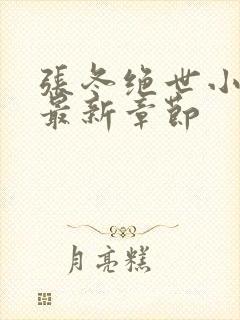 張冬绝世小
最新章節
月亮糕